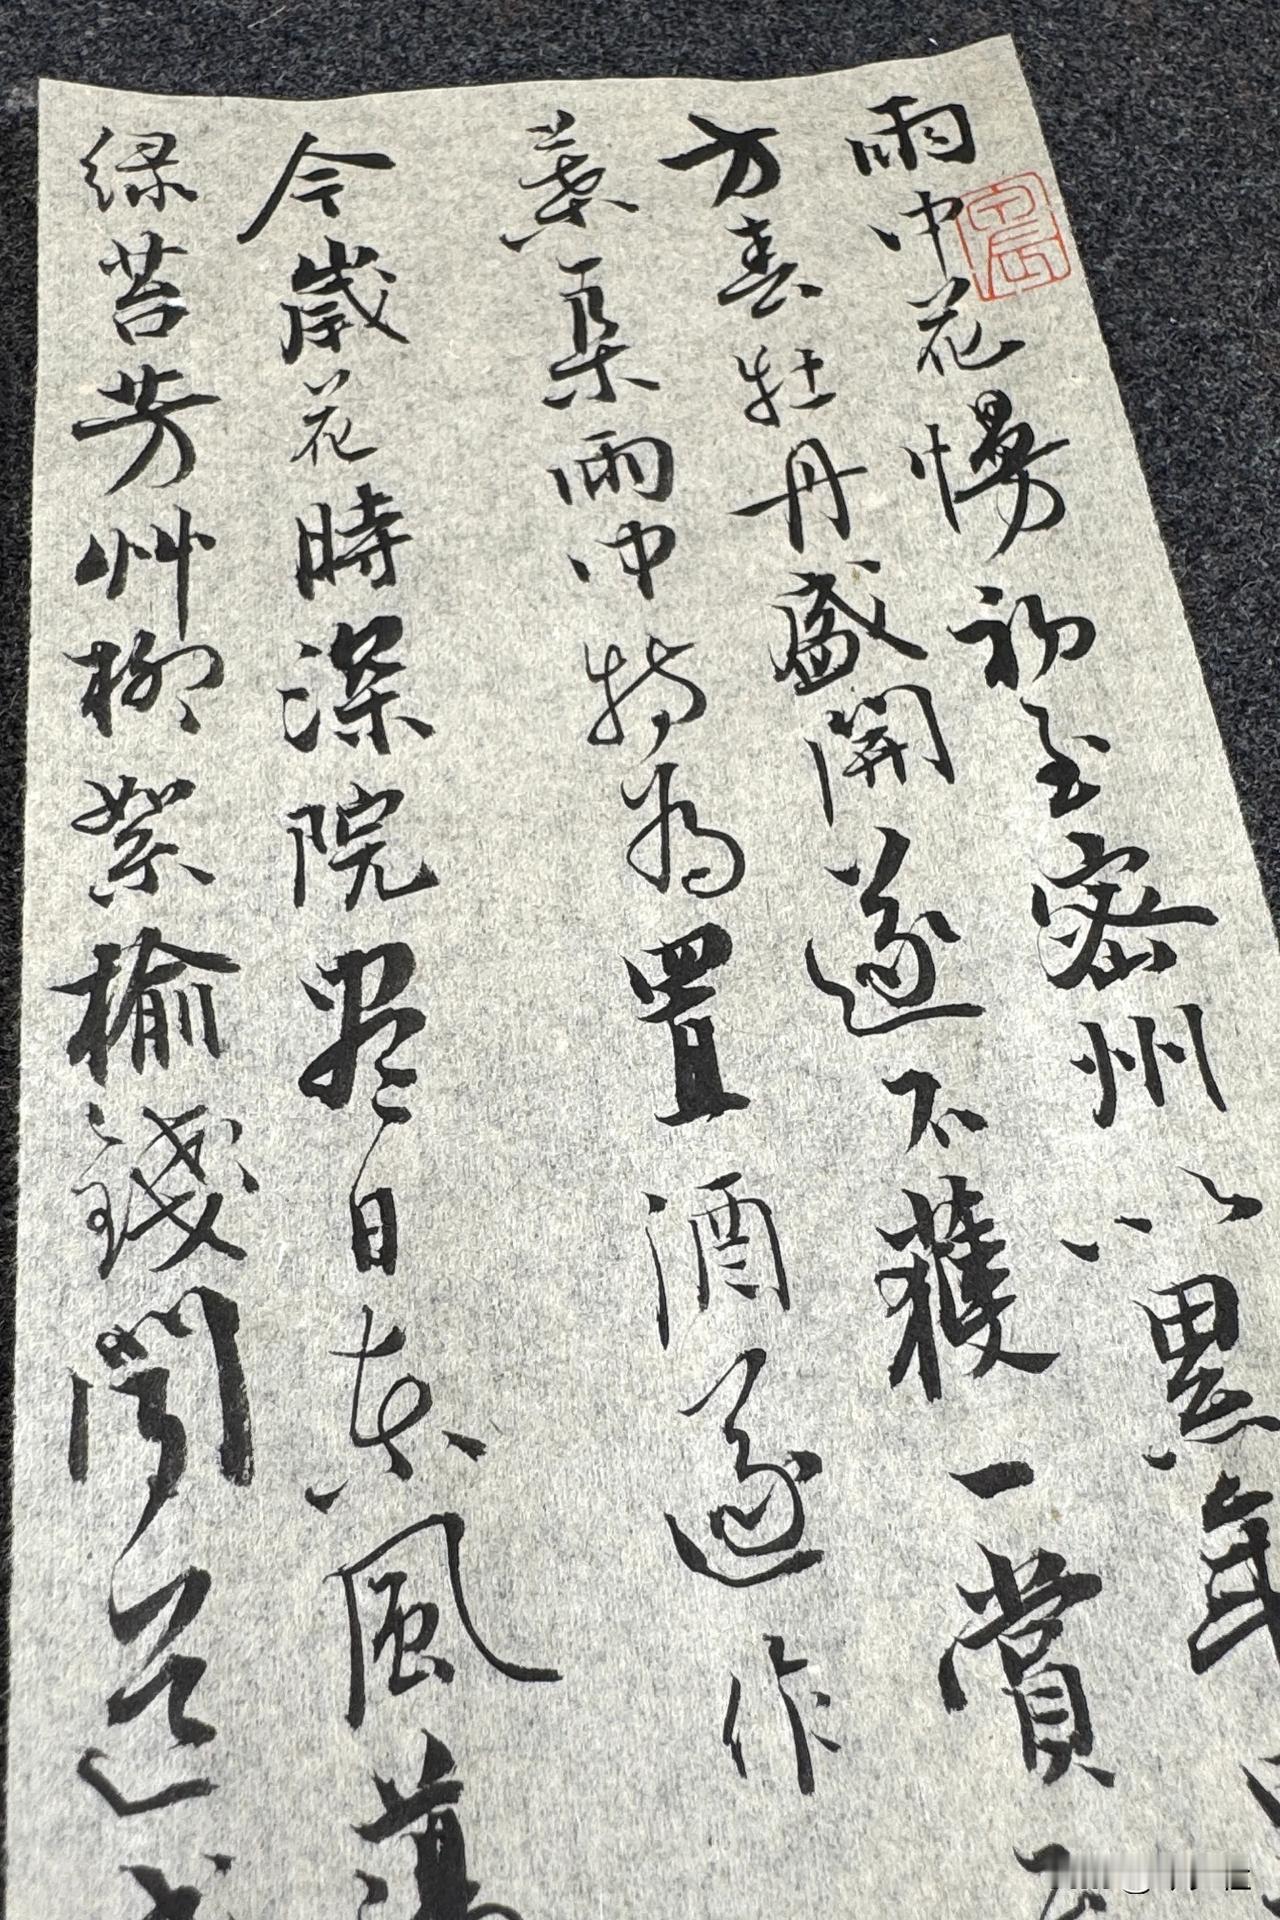 雨中花慢初至密州以累年
方春牡丹盛開遂不獲一賞
葉一朵雨中特為置酒遂作
今歲花時深院盡日東風蕩
緑苔芳艸柳絮榆錢聞道